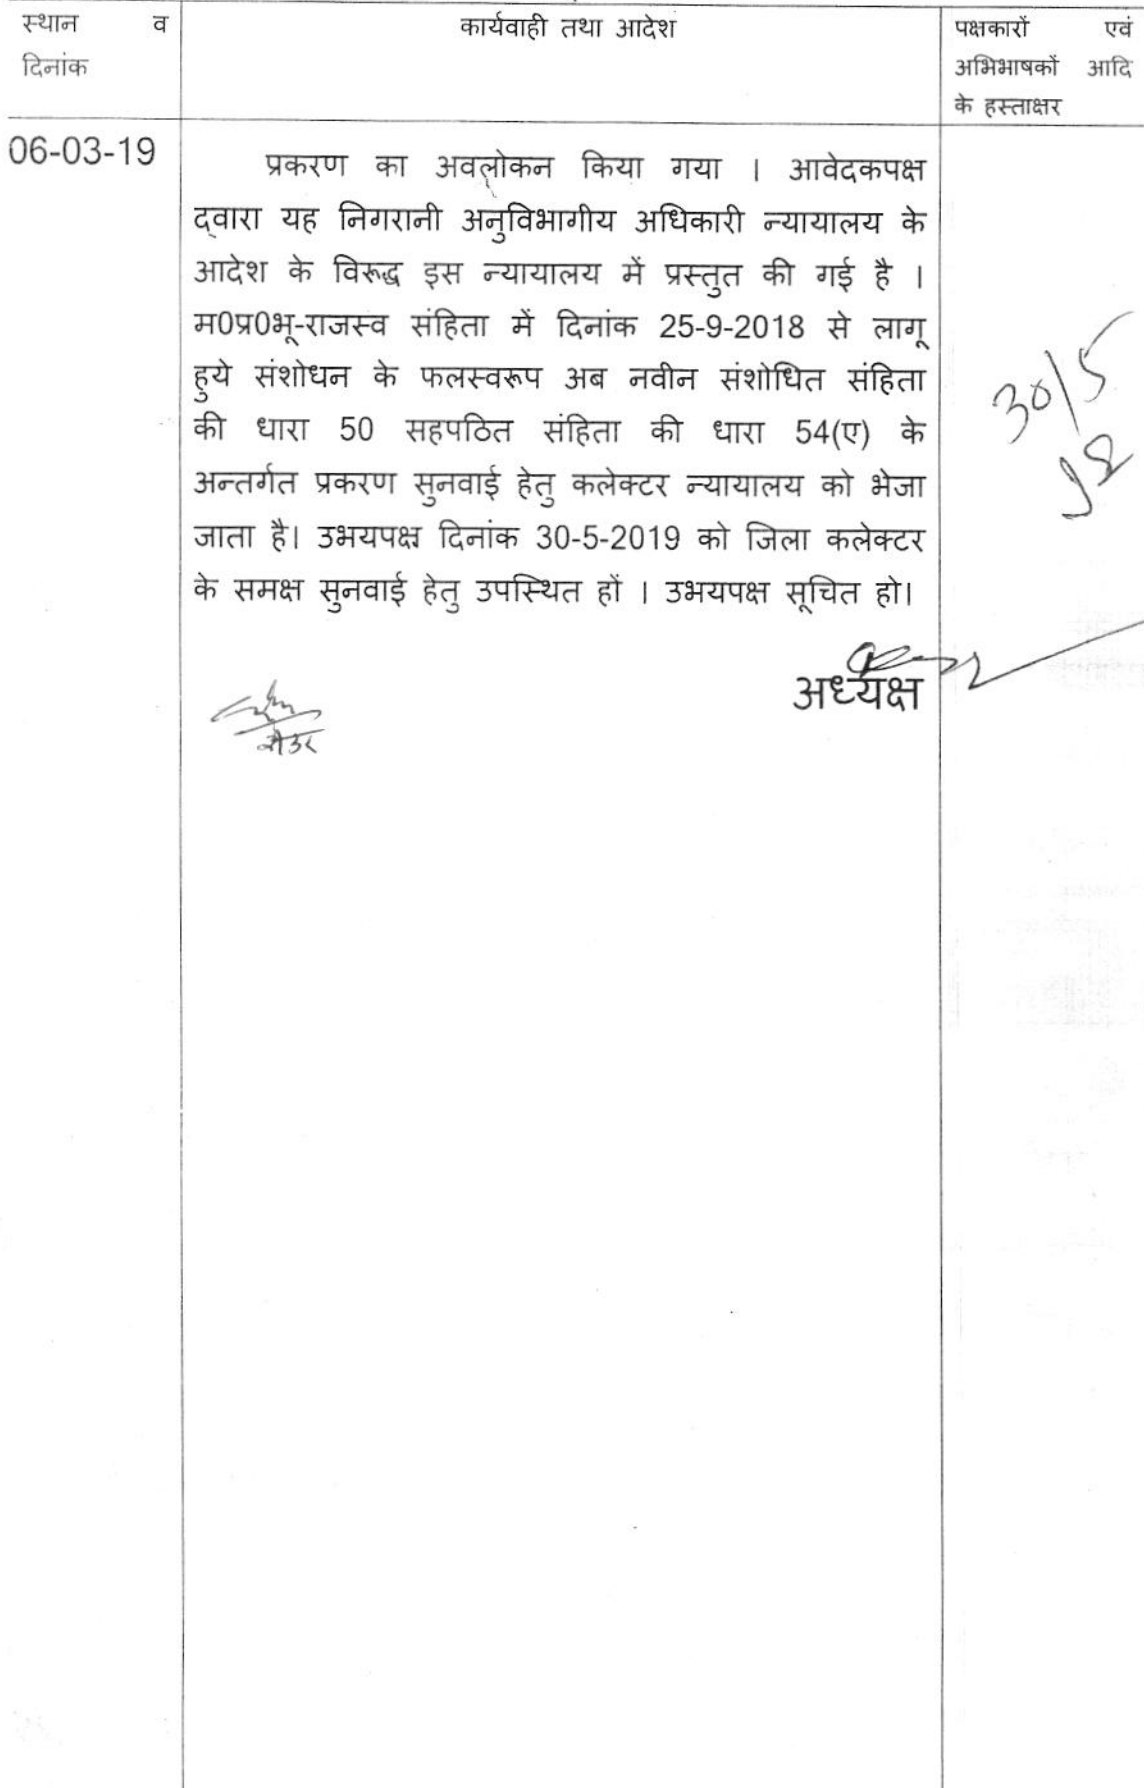 स्थान व
दिनांक
कार्यवाही तथा आदेश
पक्षकारों एवं
अभिभाषकों आदि
के हस्ताक्षर
06-03-19
प्रकरण का अवलोकन किया गया । आवेदकपक्ष
द्वारा यह निगरानी अनुविभागीय अधिकारी न्यायालय के
आदेश के विरूद्ध इस न्यायालय में प्रस्तुत की गई है ।
म0प्र0भू-राजस्व संहिता में दिनांक 25-9-2018 से लागू
हुये संशोधन के फलस्वरूप अब नवीन संशोधित संहिता
की धारा 50 सहपठित संहिता की धारा 54(ए) के
अन्तर्गत प्रकरण सुनवाई हेतु कलेक्टर न्यायालय को भेजा
जाता है। उभयपक्ष दिनांक 30-5-2019 को जिला कलेक्टर
के समक्ष सुनवाई हेतु उपस्थित हों । उभयपक्ष सूचित हो।
30/5
अध्यक्ष